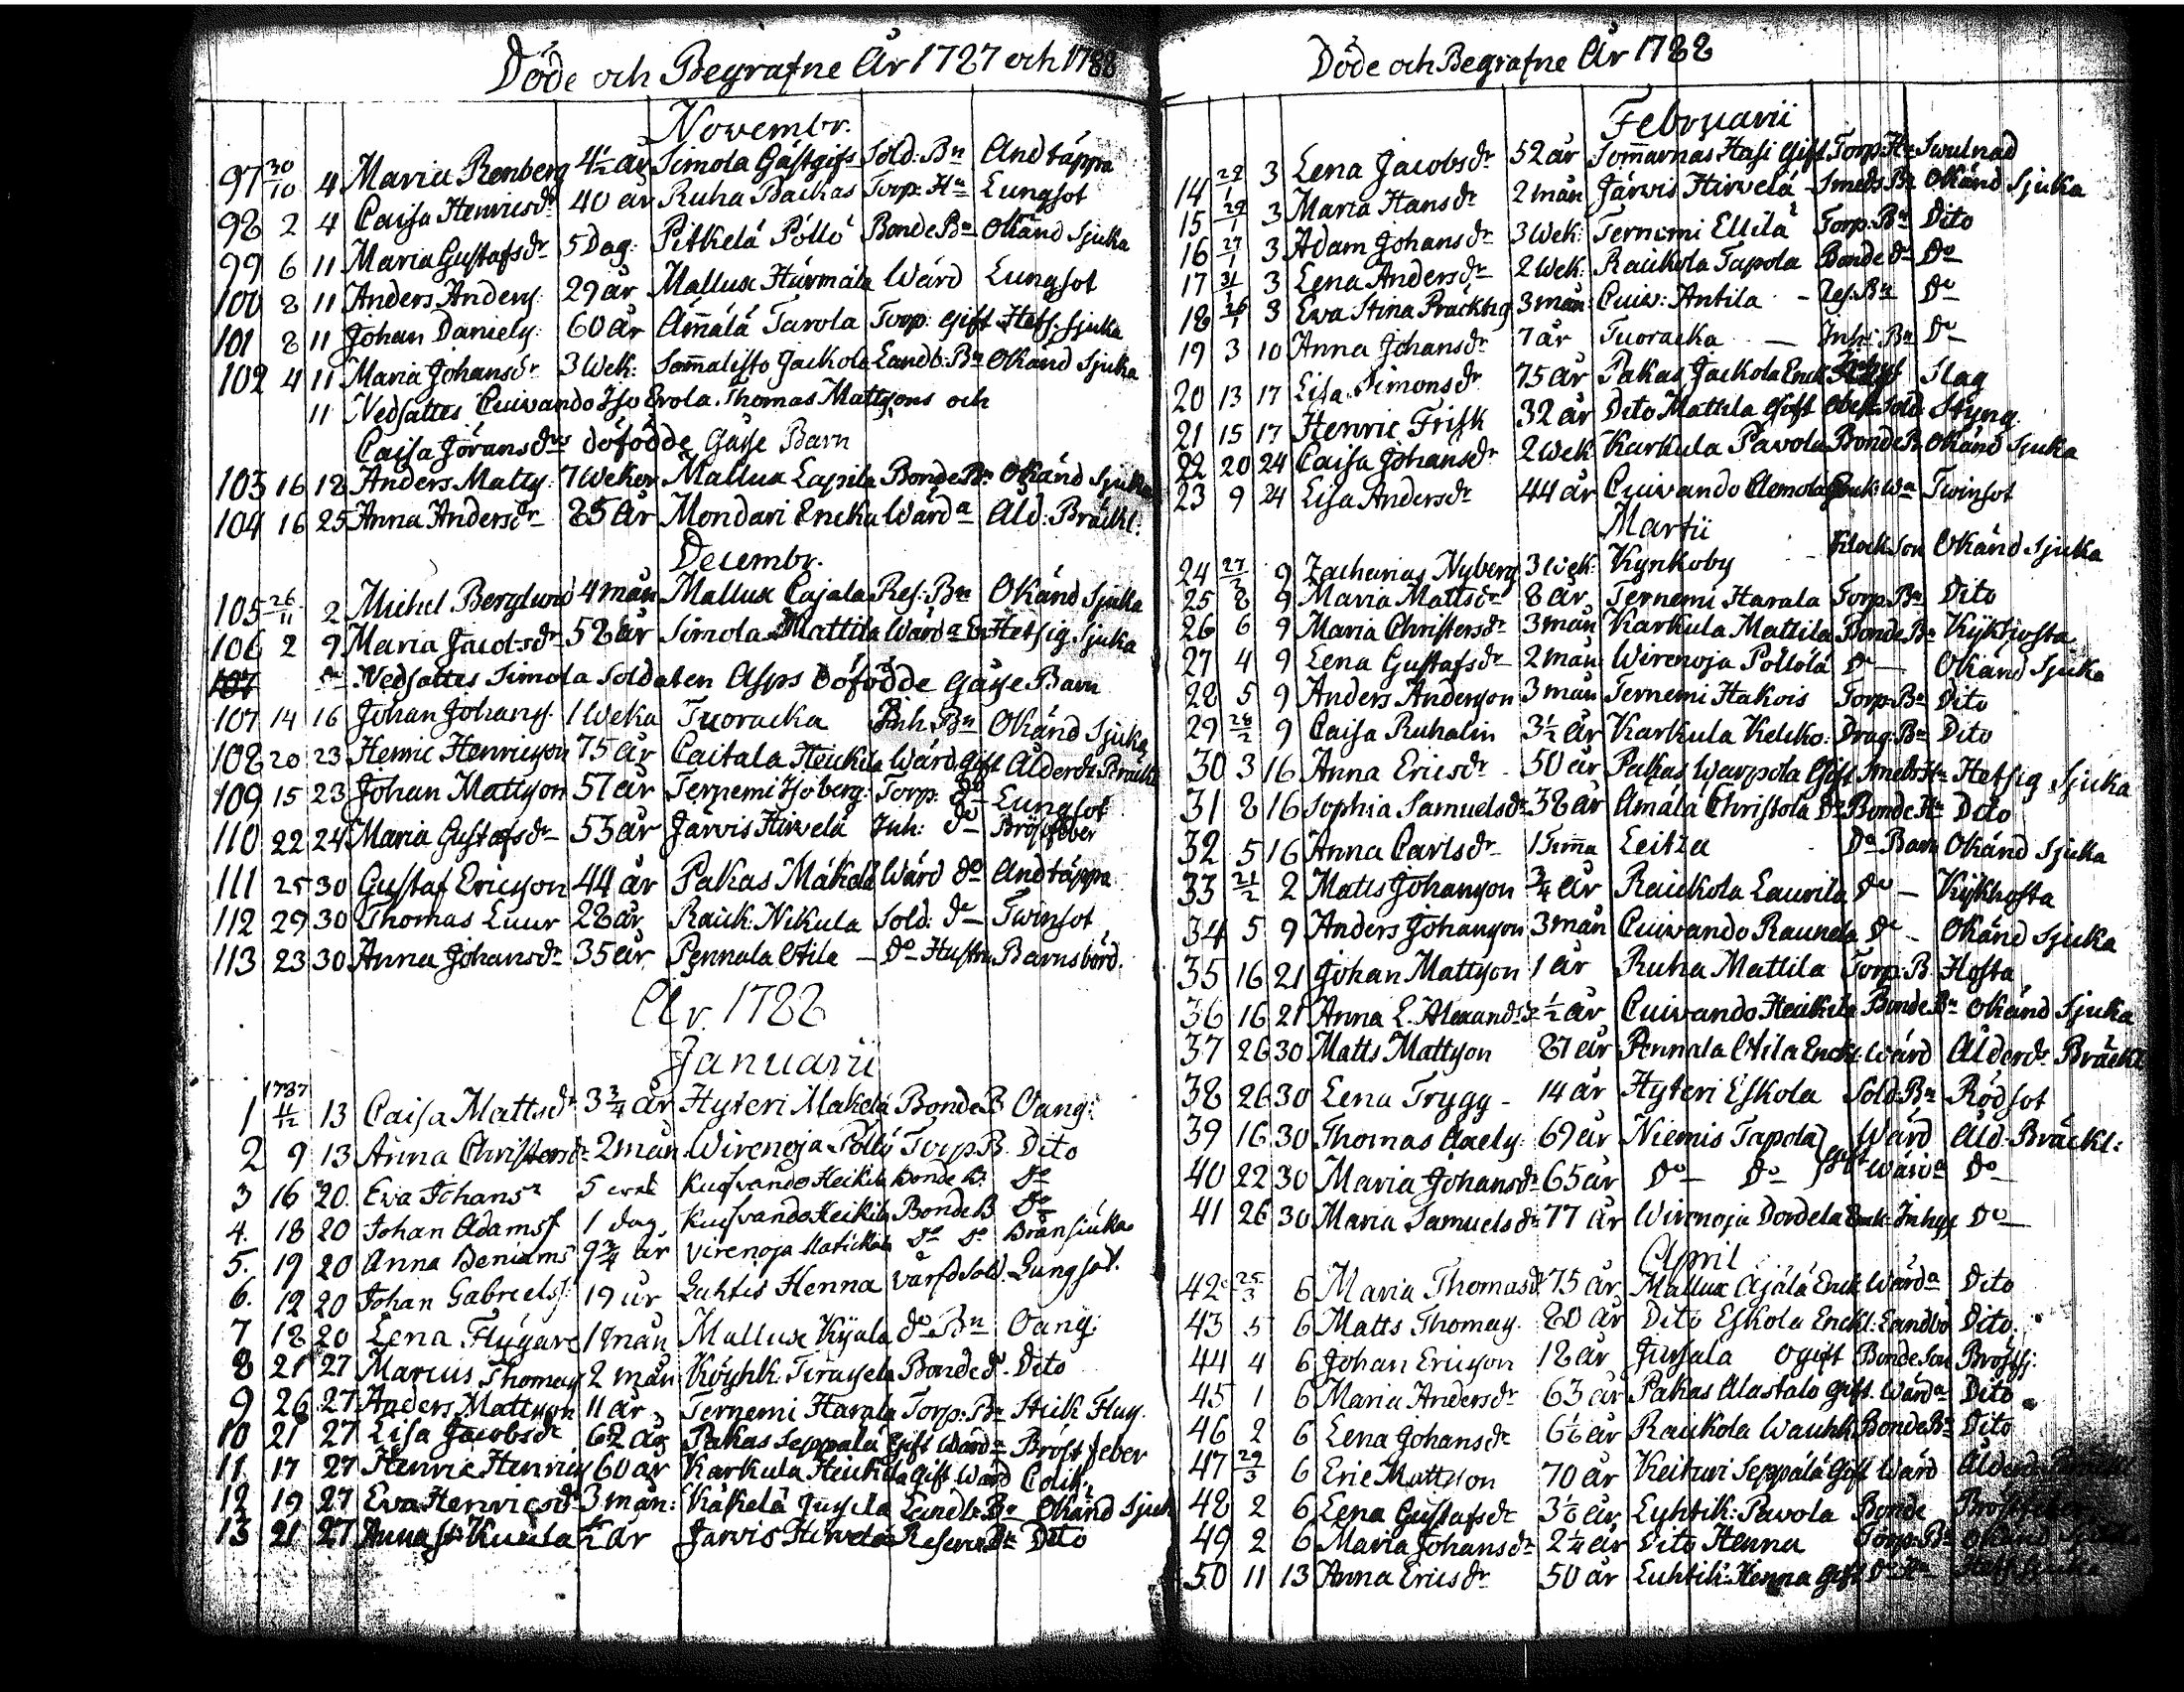 Döde och Begrafne År 1787 och 1788
Novembr.
97 30/10 4 Maria Renberg 4½ år Simola Gästgifv Sold: Bn Andtäppa
98 2 4 Caisa Henricsdr 40 år Ruha Backas Torp. Hu Lungsot
99 6 11 Maria Gustafsdr 5 Dag: Pitkelä Pöllö Bonde Bn Okänd Sjuka
100 8 11 Anders Anders. 29 år Mallux Härmälä Wärd Lungsot
101 8 11 Johan Daniels: 60 år Am̄älä Tavola Torp. Gift Hets. Sjuka
102 4 11 Maria Johansdr 3 Wek: Som̄alisto Jackola Landb: Bn Okänd Sjuka
11 Nedsattes Cuivando Iso Erola Thomas Mattsons och
Caisa Göransdrs döfödde Gåsse Barn
103 16 18 Anders Matts. 7 Weker Mallux Lapila Bonde Bn Okänd Sjuka
104 16 25 Anna Andersdr 85 år Mondari Encku Wärda Åld: Bräckl:
Decembr.
105 26/11 2 Michel Berglund 4 mån Mallux Cajala Res: Bn Okänd Sjuka
106 2 9 Maria Jacobsdr 58 år Simola Mattila Wärda En Hetsig Sjuka
Nedsattes Simola Soldaten Asps döfödde Gåsse Barn
107 14 16 Johan Johans. 1 Weka Tuoracka Inh. Bn Okänd Sjuka
108 20 23 Henric Henricsson 75 år Caitala Heickila Wärd Gift Ålderds Bräckl
109 15 23 Johan Mattsson 57 år Ternemi Isoberg. Torp. Do Lungsot
110 22 24 Maria Gustafsdr 53 år Järvis Hirvelä Inh: Do Bröstfeber
111 25 30 Gustaf Ericsson 44 år Pakas Mäkelä Wärd Do Andtäppa
112 29 30 Thomas Luur 28 år Raick: Nikula Sold: Do Twinsot
113 23 30 Anna Johansdr 35 år Pennala Atila Do Hustru Barnsbörd.
År 1788
Januarii
1787
1 4/12 13 Caisa Mattsdr 3¾ år Hyteri Mäkelä Bonde B Oang:
2 9 13 Anna Christersdr 2 mån Wirenoja Pölly Torp B. Dito
3 16 20. Eva Johans 5 wek Kuivando Heikila Bonde B. Do
4. 18 20 Johan Adamss 1 dag. Kuivando Heikila Bonde B Do
5. 19 20 Anna Beniams 9¾ år Virenoja Do Do Bränsiuka
6. 12 20 Johan Gabriels: 19 år Luhtis Henna Sold. Lungsot.
7 18 20 Lena Flygare 1 mån Mallux Kyala Do Bn Oang:
8 21 27 Marcus Thomas 2 mån Köyhk: Bonde Do. Dito
9 26 27 Anders Mattsson 11 år Ternemi Harala Torp: Bn Stick Flus.
10 21 27 Lisa Jacobsdr 62 år Pakas Seppälä Gift Wärda Bröst feber
11 17 27 Henric Henrics 60 år Karkula Heickila Gift Wärd Colik:
12 19 27 Eva Henricsdr 3 mån: Käkelä Jussila Landb: Bn Okänd Sjuk
13 21 27 Anna St: ½ år Järvis Hirvelä Reserv. Bn Dito
Döde och Begrafne År 1788
Februarii
14 28/1 3 Lena Jacobsdr 52 år Som̄arnäs Hasi Gift Torp: Hu Swulnad
15 29/1 3 Maria Hansdr 2 mån Järvis Hirvelä Smeds Bn Okänd Sjuka
16 27/1 3 Adam Johansdr 3 Wek: Ternemi Ellilä Torp: Bn Dito
17 31/1 3 Lena Andersdr 2 Wek. Raickola Tapola Bonde Dr Do
18 26/1 3 Eva Stina Pracktig 3 mån: Cuiv: Antila Res: Bn Do
19 3 10 Anna Johansdr 7 år Tuoracka Inh: Bn Do
20 13 17 Lisa Simonsdr 75 år Pakas Jackola Enck Inhys Slag
21 15 17 Henric Frisk 32 år Dito Mattila Gift Sold: Styng.
22 20 24 Caisa Johansdr 2 Wek Karkula Pavola Bonde Bn Okänd Sjuka
23 9 24 Lisa Andersdr 44 år Cuivando Clemola Enk: Wa Twinsot
Martii
24 27/2 9 Zacharias Nyberg 3 Wek: Kyrkoby Klock. Son Okänd Sjuka
25 8 9 Maria Mattsdr 8 år. Ternemi Harala Torp. Bn Dito
26 6 9 Maria Christersdr 3 mån Karkula Mattila Bonde Bn Kykhosta
27 4 9 Lena Gustafsdr 2 mån Wirenoja Pöllölä Do Okänd Sjuka
28 5 9 Anders Andersson 3 mån Ternemi Hakois Torp. Bn Dito
29 28/2 9 Caisa Ruhalin 3½ år Karkula Kekko: Drag. Bn Dito
30 3 16 Anna Ericsdr 50 år Pakas Warpola Gift Smeds Hu Hetsig Sjuka
31 8 16 Sophia Samuelsdr 38 år Amälä Christola Do Bonde Hu Dito
32 5 16 Anna Carlsdr 1 Tim̄a Leitza Do Barn Okänd Sjuka
33 21/2 2 Matts Johansson ¾ år Raickola Laurila Do Kykhosta
34 5 9 Anders Johansson 3 mån Cuivando Raunela Do Okänd Sjuka
35 16 21 Johan Mattsson 1 år Ruha Mattila Torp: B Hosta
36 16 21 Anna L. Alexandsdr ½ år Cuivando Heickila Bonde Bn Okänd Sjuka
37 26 30 Matts Mattsson 87 år Pennala Atila Enck: Wärd Ålderds Bräckl
38 26 30 Lena Trygg 14 år Hyteri Eskola Sold: Bn Rödsot
39 16 30 Thomas 69 år Niemis Tapola Wärd Åld. Bräckl:
40 22 30 Maria Johansdr 65 år Do Do Gift Wärda Do
41 26 30 Maria Samuelsdr 77 år Wirenoja Dordela Enk: Inhys Do
April
42 25/3 6 Maria Thomasdr 75 år Mallux Ajälä Enck Wärda Dito
43 5 6 Matts Thomas. 80 år Dito Eskola Enckl: Landbo Dito.
44 4 6 Johan Ericsson 18 år Jussala Ogift Bonde Son Bröstsj:
45 1 6 Maria Andersdr 63 år Pakas Alastalo Gift. Wärda Dito
46 2 6 Lena Johansdr 6½ år Raickola Wauhk Bonde Bn Dito
47 29/3 6 Eric Mattsson 70 år Keituri Seppälä Gift Wärd Ålderds
48 2 6 Lena Gustafsdr 3½ år Lyhtik: Pavola Bonde Bröstfeber
49 2 6 Maria Johansdr 2¼ år Dito Henna Torp: Bn Okänd Sjuka
50 11 13 Anna Ericsdr 50 år Luhtik: Henna Gift Do Hu Hets Sjuka